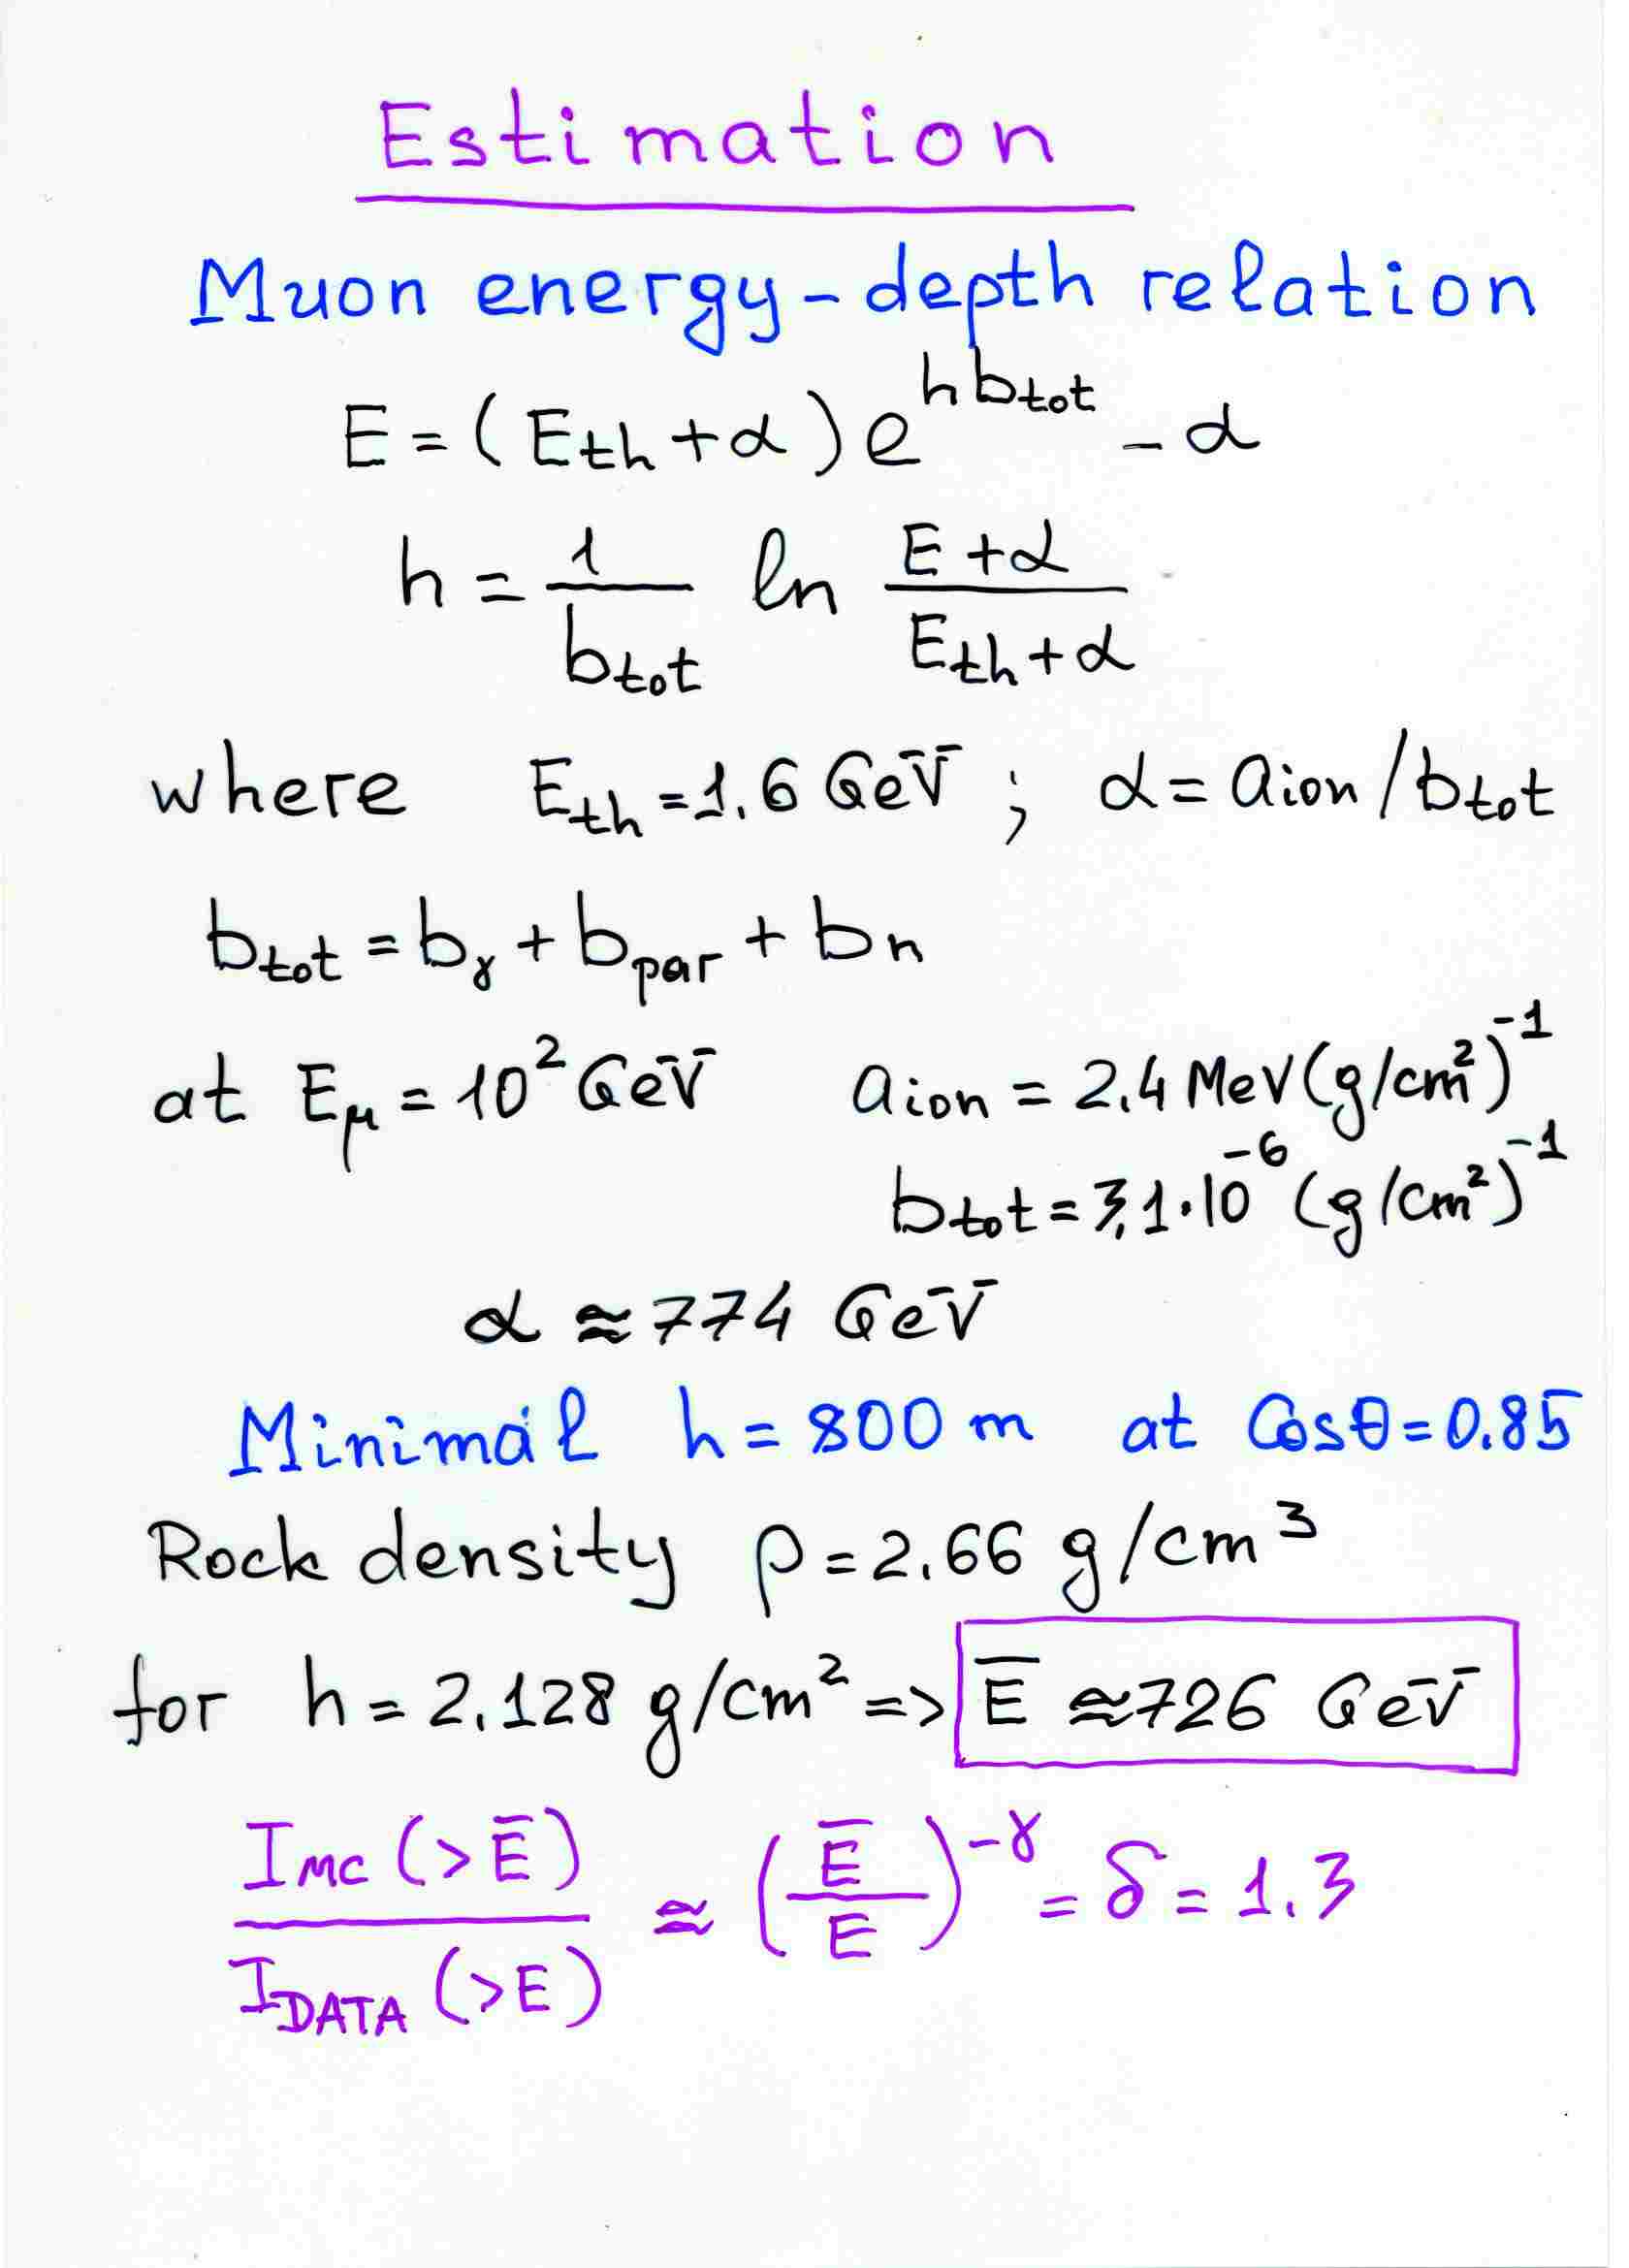 Estimation
Muon energy-depth relation
E = (Eth + α) e^hbtot - α
h = 1/btot ln (E + α)/(Eth + α)
where Eth = 1.6 GeV ; α = aion / btot
btot = bγ + bpar + bn
at Eμ = 10² GeV aion = 2.4 MeV (g/cm²)⁻¹
btot = 3,1·10⁻⁶ (g/cm²)⁻¹
α ≈ 774 GeV
Minimal h = 800 m at Cosθ = 0.85
Rock density ρ = 2.66 g/cm³
for h = 2.128 g/cm² => E̅ ≈ 726 GeV
IMC (>E̅) / IDATA (>E) ≈ (E̅/E)^-γ = δ = 1.3